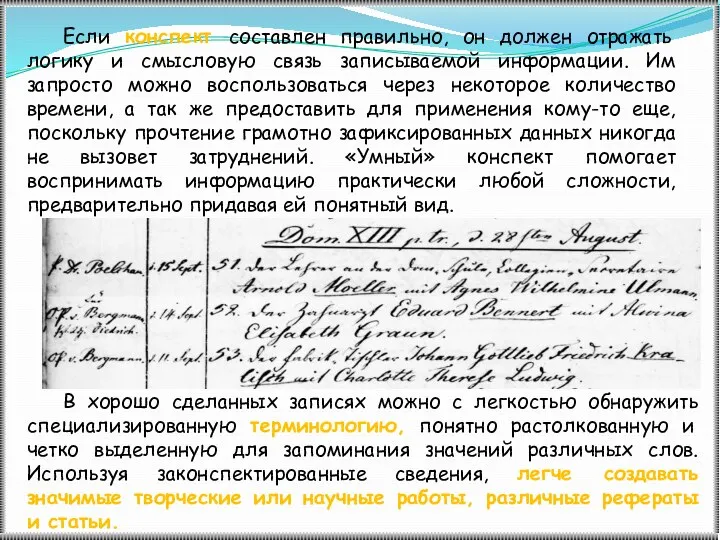 Если конспект составлен правильно, он должен отражать
логику и смысловую связь записываемой информации. Им
запросто можно воспользоваться через некоторое количество
времени, а так же предоставить для применения кому-то еще,
поскольку прочтение грамотно зафиксированных данных никогда
не вызовет затруднений. «Умный» конспект помогает
воспринимать информацию практически любой сложности,
предварительно придавая ей понятный вид.
Dom. XIII p. tr., d. 28sten August.
Belthan. 15 Sept. 51. Der Lehrer an der Dom, Schule, Collegien, Secretaire
Arnold Moeller mit Agnes Wilhelmine Ulmann.
v. Bergmann 14 Sept. 52. Der Zahnarzt Eduard Bennert mit Alwina
Dietrich. Elisabeth Graun.
v. Bergmann. 11 Sept. 53. Der Fabrik, Tischler Johann Gottlieb Friedrich Kra-
lisch mit Charlotte Therese Ludwig.
В хорошо сделанных записях можно с легкостью обнаружить
специализированную терминологию, понятно растолкованную и
четко выделенную для запоминания значений различных слов.
Используя законспектированные сведения, легче создавать
значимые творческие или научные работы, различные рефераты
и статьи.